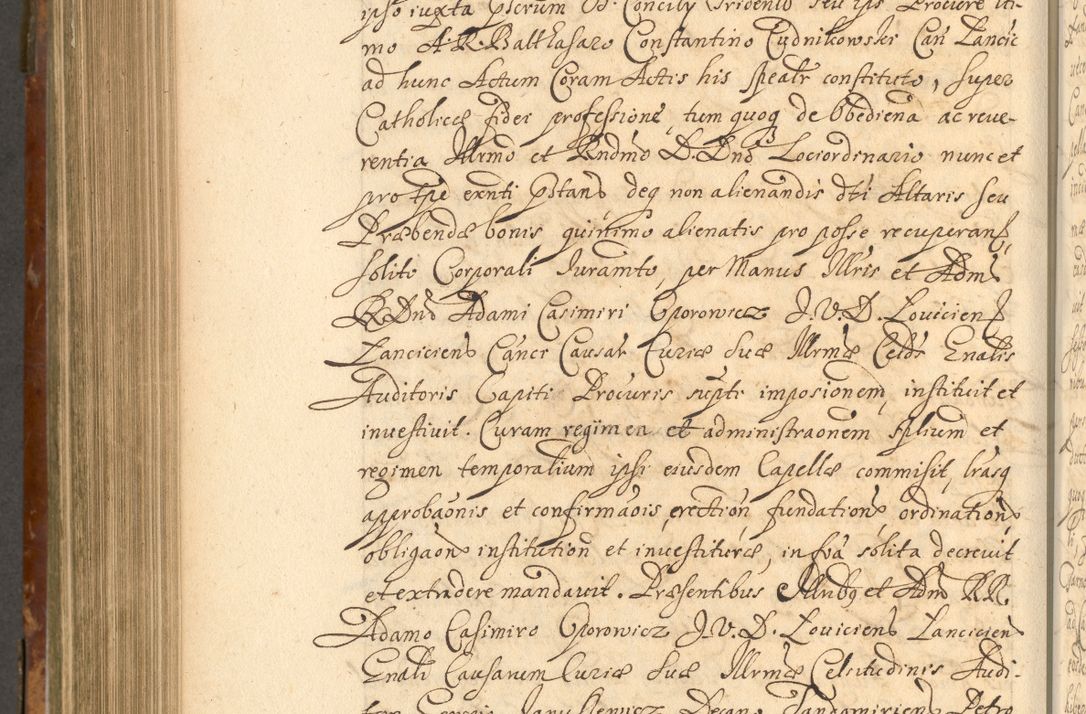 ipso iuxta pscrum Os. Concily Tridenti seu ips Procure iti-
mo A. R. Balthasaro Constantino Cudnikowski Can Lancic
ad hunc Actum Coram Actis his spealr constituto, super
Catholicæ fidei professione, tum quoq de Obediena ac reve-
rentia Illrmo et Rndmo D. Dno Lociordinario nunc et
pro tpe exnti pstans deq non alienandis dti Altaris seu
Præbendæ bonis quinimo alienatis pro posse recuperan
solito Corporali Juramto, per Manus Illris et Adm
R. Dni Adami Casimiri Oporowicz J. V. D. Lovicien
Lanciciens Cance Causar Curiæ Suæ Illrmæ Celds Gnalis
Auditoris Capiti Procuris supte imposionem, instituit et
investivit. Curam regimen et administraonem splium et
regimen temporalium ipsi eiusdem Capellæ commisit, lrasq
approbaonis et confirmaois, erection fundation, ordination
obligaon institution et investituræ, in frã solita decrevit
et extradere mandavit. Præsentibus Illribq et Adm RR.
Adamo Casimiro Oporowicz J. V. D. Loviciens Lanciciens
Gnali Causarum Curiæ Suæ Illrmæ Celsitudinis Audi-
tore Decano Sandomiriens Petro